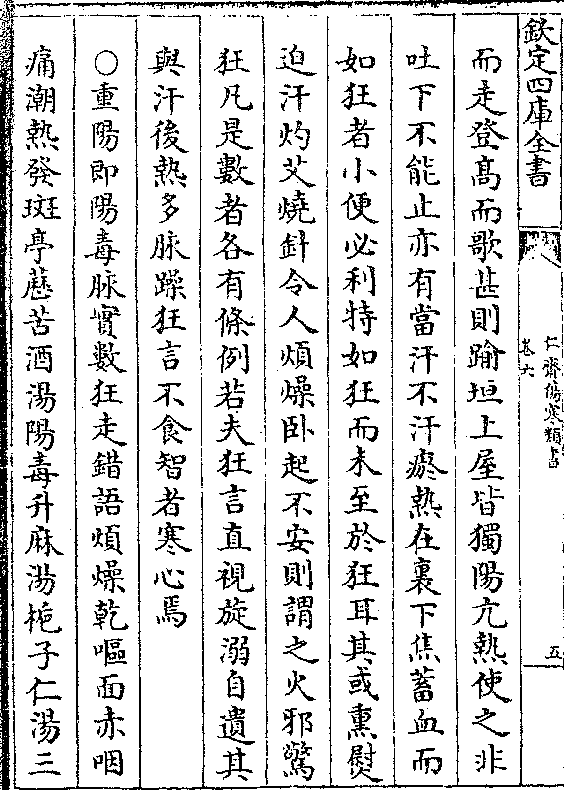 欽定四庫全書
仁齋傷寒類書
卷六
五
而走登髙而歌甚則踰垣上屋皆獨陽亢熱使之非
吐下不能止亦有當汗不汗瘀熱在裏下焦蓄血而
如狂者小便必利特如狂而未至於狂耳其或熏熨
迫汗灼艾燒針令人煩燥卧起不安則謂之火邪驚
狂凡是數者各有條例若夫狂言直視旋溺自遺其
與汗後熱多脉躁狂言不食智者寒心焉
○重陽即陽毒脉實數狂走錯語煩燥乾嘔面赤咽
痛潮熱發斑亭藶苦酒湯陽毒升麻湯梔子仁湯三